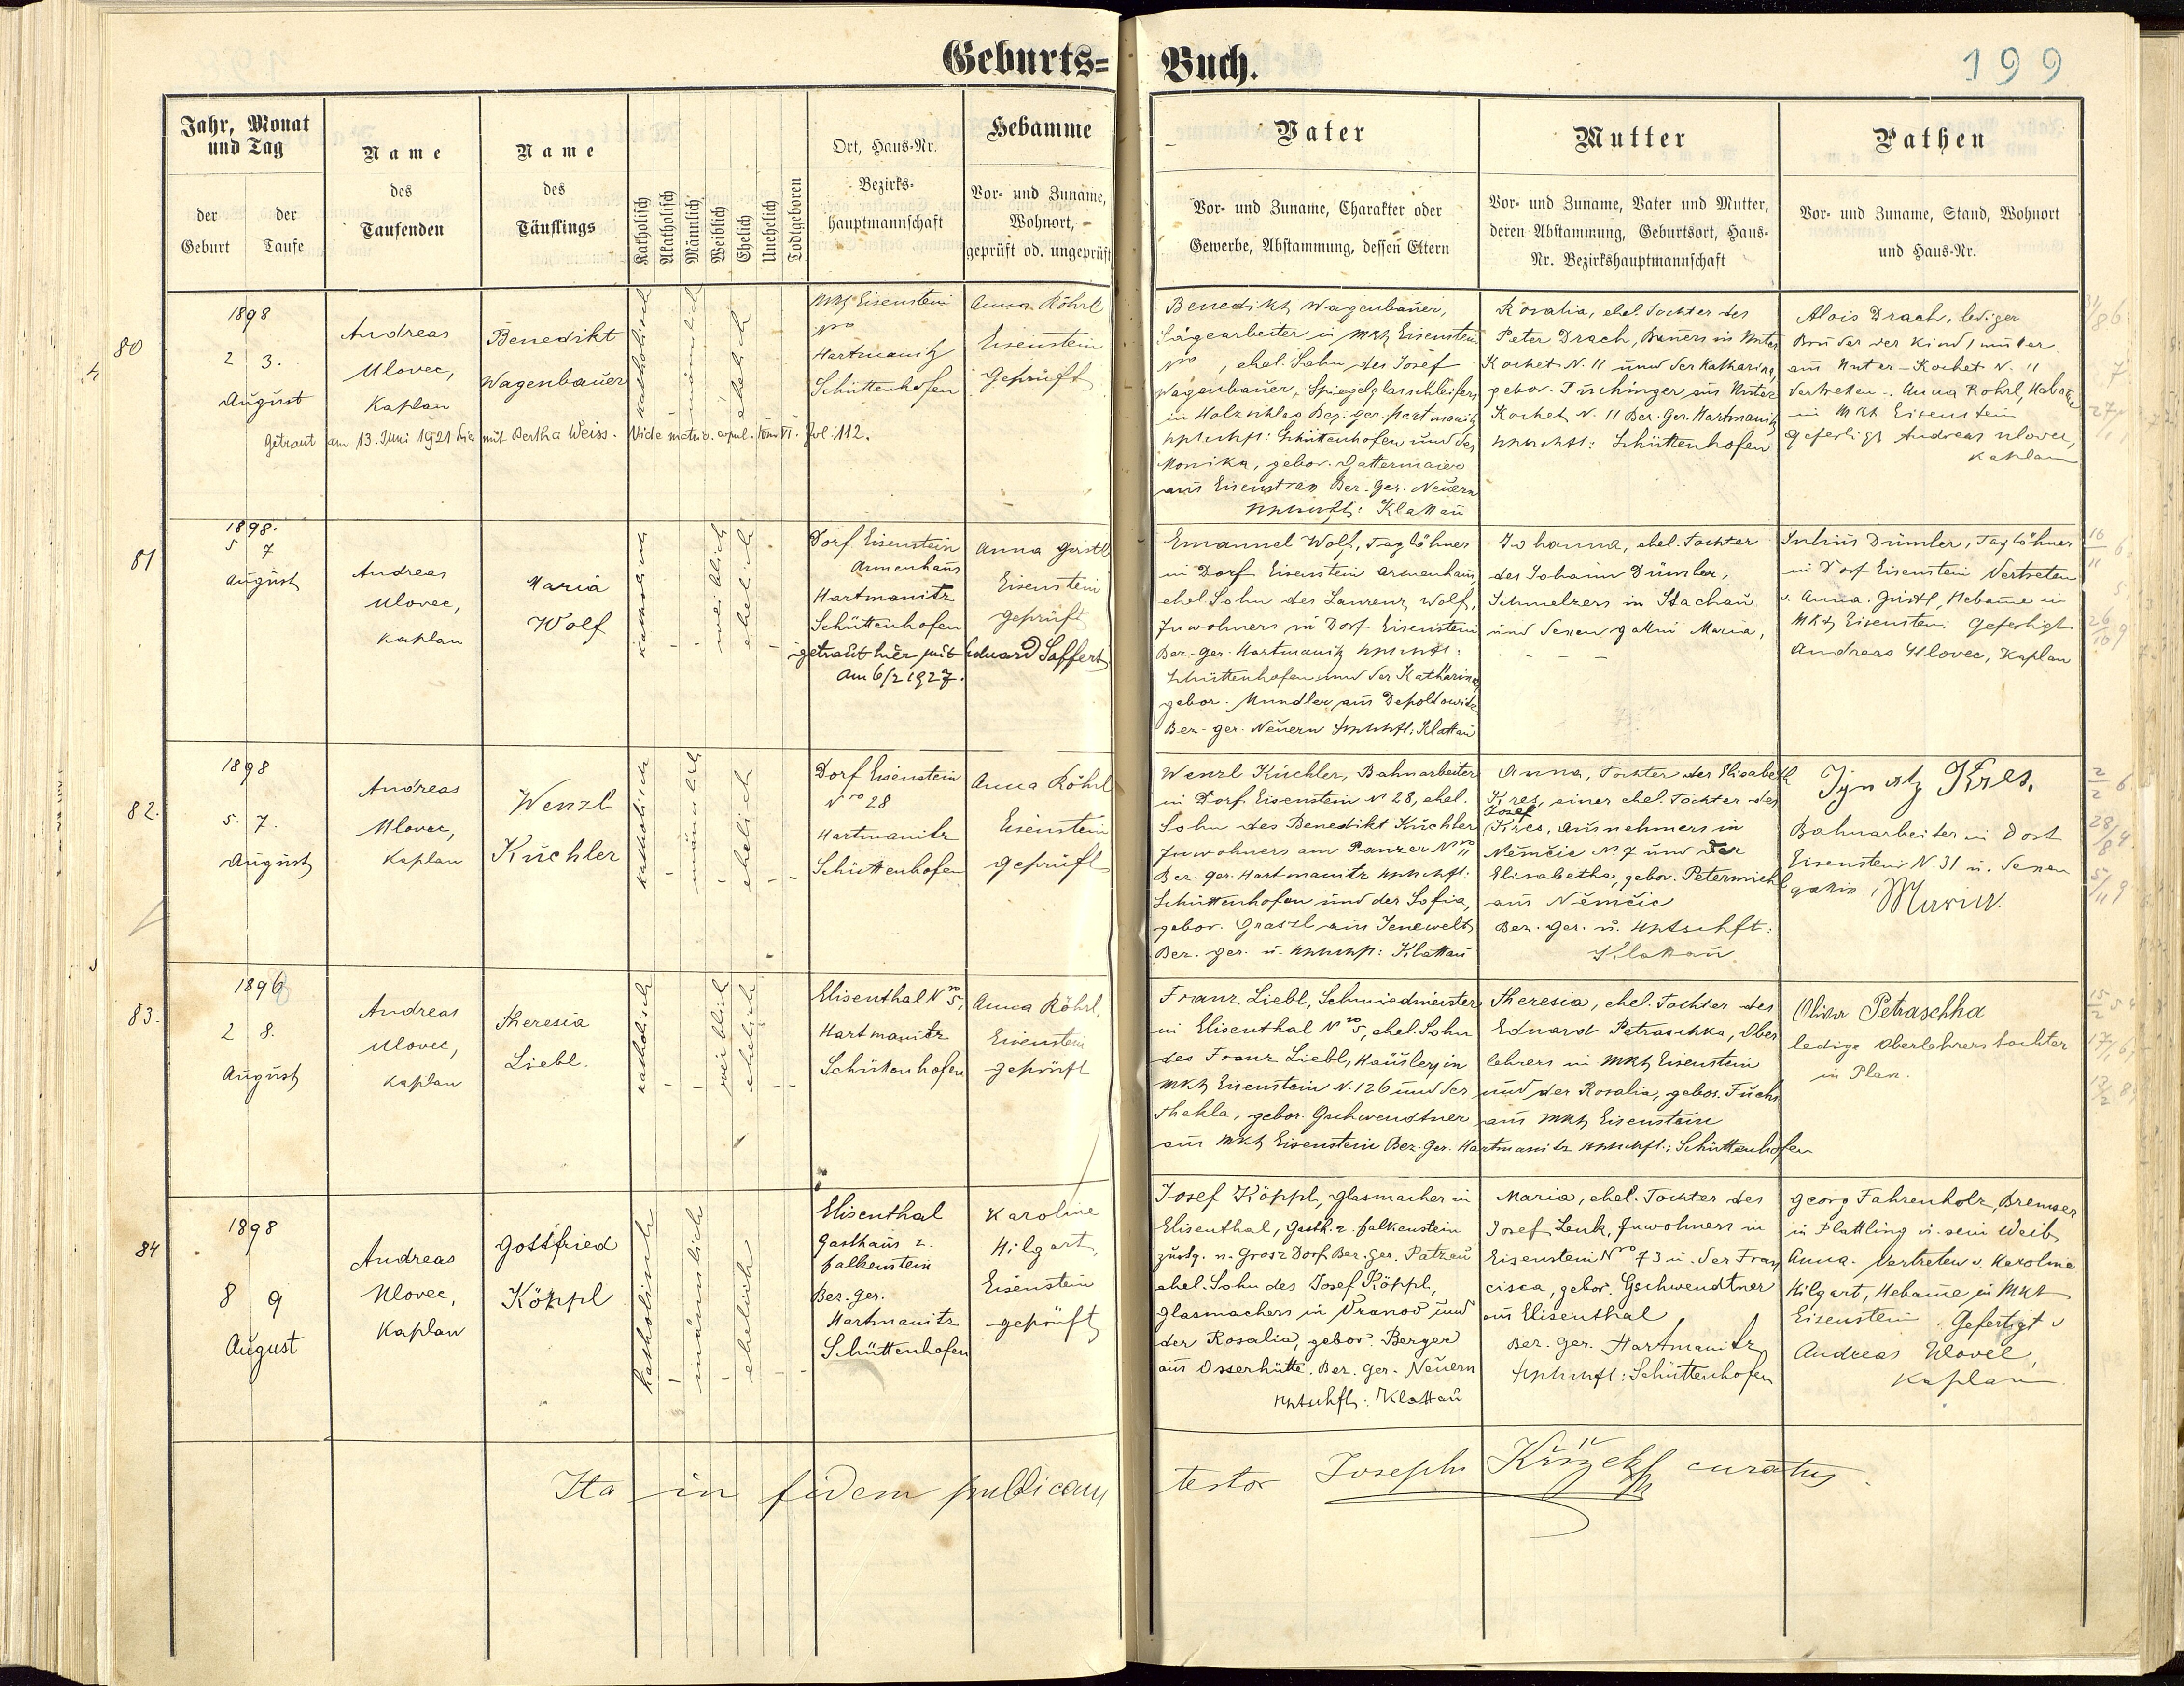 Geburts=Buch.
199
Jahr, Monat und Tag
der Geburt
der Taufe
Name des Taufenden
Name des Täuflings
Katholisch
Akatholisch
Männlich
Weiblich
Ehelich
Unehelich
Todtgeboren
Ort, Haus-Nr.
Bezirks-
hauptmannschaft
Hebamme
Vor- und Zuname,
Wohnort,
geprüft od. ungeprüft
Vater
Vor- und Zuname, Charakter oder
Gewerbe, Abstammung, dessen Eltern
Mutter
Vor- und Zuname, Vater und Mutter,
deren Abstammung, Geburtsort, Haus-
Nr. Bezirkshauptmannschaft
Pathen
Vor- und Zuname, Stand, Wohnort
und Haus-Nr.
80
1898
2 3.
August
Andreas
Ulovec,
Kaplan
Benedikt
Wagenbauer
katholisch
männlich
ehelich
Mkt Eisenstein
Nro
Hartmanitz
Schüttenhofen
Anna Röhrl
Eisenstein
Geprüft
Getraut am 13. Juni 1921 hier mit Bertha Weiss. Vide matric. copul. Tom VI. fol. 112.
Benedikt Wagenbauer,
Sägearbeiter in Mkt Eisenstein
Nro , ehel. Sohn des Josef
Wagenbauer, Spiegelglasschleifers
in Holzschlag Bez. ger. Hartmanitz
Hptschft: Schüttenhofen und der
Monika, gebor. Gattermaier
aus Eisenstrass Bez. Ger. Neuern
Hptschft: Klattau
Rosalia, ehel. Tochter des
Peter Drach, Bauers in Unter
Kochet N. 11 und der Katharina,
gebor. Tuschinger aus Unter
Kochet N. 11 Bez. Ger. Hartmanitz
Hptschft: Schüttenhofen
Alois Drach, lediger
Bruder der Kindsmutter
aus Unter-Kochet N. 11
Vertreten. Anna Röhrl, Hebame
in Mkt Eisenstein
Gefertigt Andreas Ulovec,
Kaplan
81
1898.
5 7
August
Andreas
Ulovec,
Kaplan
Maria
Wolf
katholisch
weiblich
ehelich
Dorf Eisenstein
Armenhaus
Hartmanitz
Schüttenhofen
Anna Gerstl
Eisenstein
geprüft
getraut hier mit Eduard Saffert
am 6/2 1927.
Emanuel Wolf, Taglöhner
in Dorf Eisenstein Armenhaus,
ehel. Sohn des Laurenz Wolf,
Inwohners in Dorf Eisenstein
Bez. Ger. Hartmanitz Hptschft:
Schüttenhofen und der Katharina,
gebor. Mundler aus Depoldowitz
Bez. ger. Neuern Hptschft: Klattau
Johanna, ehel. Tochter
des Johann Dümler,
Schmelzers in Stachau
und dessen gattin Maria,
Julius Dümler, Taglöhner
in Dorf Eisenstein Vertreten
v. Anna Gerstl, Hebame in
Mkt Eisenstein. Gefertigt
Andreas Ulovec, Kaplan
82.
1898
5. 7.
August
Andreas
Ulovec,
Kaplan
Wenzl
Küchler
katholisch
männlich
ehelich
Dorf Eisenstein
Nro 28
Hartmanitz
Schüttenhofen
Anna Röhrl
Eisenstein
geprüft
Wenzl Küchler, Bahnarbeiter
in Dorf Eisenstein N 28, ehel.
Sohn des Benedikt Küchler
Inwohners am Panzer Nro 11
Bez. ger. Hartmanitz Hptschft:
Schüttenhofen und der Sofia,
gebor. Graszl aus Jenewelt
Bez. ger. u. Hptschft: Klattau
Anna, Tochter der Elisabeth
Kres, einer ehel. Tochter des
Josef
Kres, Ausnehmers in
Němčic N. 7 und der
Elisabetha, gebor. Petermichl
aus Němčic
Bez. Ger. u. Hptschft:
Klattau
Ignatz Kres,
Bahnarbeiter in Dorf
Eisenstein N. 31 u. dessen
gattin Maria.
83.
1898
2 8.
August
Andreas
Ulovec,
Kaplan
Theresia
Liebl.
katholisch
weiblich
ehelich
Elisenthal Nro 5,
Hartmanitz
Schüttenhofen
Anna Röhrl,
Eisenstein
geprüft
Franz Liebl, Schmiedmeister
in Elisenthal Nro 5, ehel. Sohn
des Franz Liebl, Häuslers in
Mkt Eisenstein N. 126 und der
Thekla, gebor. Gschwendtner
aus Mkt Eisenstein Bez. Ger. Hartmanitz Hptschft: Schüttenhofen
Theresia, ehel. Tochter des
Eduard Petraschka, Ober
lehrers in Mkt Eisenstein
und der Rosalia, gebor. Fuchs
aus Mkt Eisenstein
Petraschka
ledige Oberlehrerstochter
in Plan.
84
1898
8 9
August
Andreas
Ulovec,
Kaplan
Gottfried
Köppl
katholisch
männlich
ehelich
Elisenthal
Gasthaus z.
Falkenstein
Bez. Ger.
Hartmanitz
Schüttenhofen
Karoline
Hilgart,
Eisenstein
geprüft
Josef Köppl, Glasmacher in
Elisenthal, Gasth. z. Falkenstein
zustg. n. Grosz Dorf Bez. Ger. Patzau
ehel. Sohn des Josef Köppl,
Glasmachers in Vranov und
der Rosalia, gebor. Berger
aus Osserhütte. Bez. Ger. Neuern
Hptschft: Klattau
Maria, ehel. Tochter des
Josef Lenk, Inwohners in
Eisenstein Nro 73 u. der Fran
cisca, gebor. Gschwendtner
aus Elisenthal
Bez. Ger. Hartmanitz
Hptschft: Schüttenhofen
Georg Fahrenholz, Bremser
in Plattling u. sein Weib
Anna. Vertreten v. Karoline
Hilgart, Hebame in Mkt
Eisenstein. Gefertigt v
Andreas Ulovec,
Kaplan.
Ita in fidem publicam testor Joseph Křížek curatus.